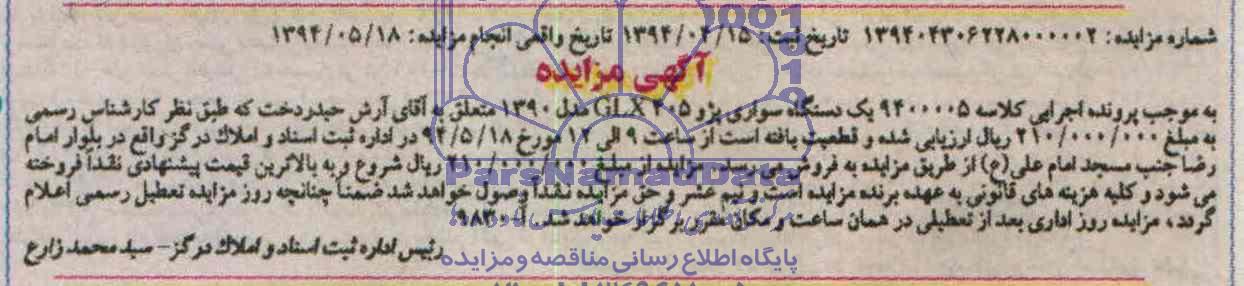 شماره مزایده: ۱۳۹۴۰۴۳۰۶۲۲۸۰۰۰۰۰۲ تاریخ ثبت: ۱۳۹۴/۰۴/۱۵ تاریخ واقعی انجام مزایده: ۱۳۹۴/۰۵/۱۸
آگهی مزایده
به موجب پرونده اجرایی کلاسه ۹۴۰۰۰۰۵ یک دستگاه سواری پژو ۴۰۵ GLX مدل ۱۳۹۰ متعلق به آقای آرش حیدردخت که طبق نظر کارشناس رسمی
به مبلغ ۲۱۰/۰۰۰/۰۰۰ ریال ارزیابی شده و قطعیت یافته است از ساعت ۹ الی ۱۲ مورخ ۹۴/۵/۱۸ در اداره ثبت اسناد و املاک درگز واقع در بلوار امام
رضا جنب مسجد امام علی(ع) از طریق مزایده به فروش می رسد. مزایده از مبلغ ۲۱۰/۰۰۰/۰۰۰ ریال شروع و به بالاترین قیمت پیشنهادی نقداً فروخته
می شود و کلیه هزینه های قانونی به عهده برنده مزایده است و نیم عشر و حق مزایده نقداً وصول خواهد شد ضمناً چنانچه روز مزایده تعطیل رسمی اعلام
گردد، مزایده روز اداری بعد از تعطیلی در همان ساعت و مکان مقرر برگزار خواهد شد.
رئیس اداره ثبت اسناد و املاک درگز – سید محمد زارع
ParsNamadData
پایگاه اطلاع رسانی مناقصه و مزایده